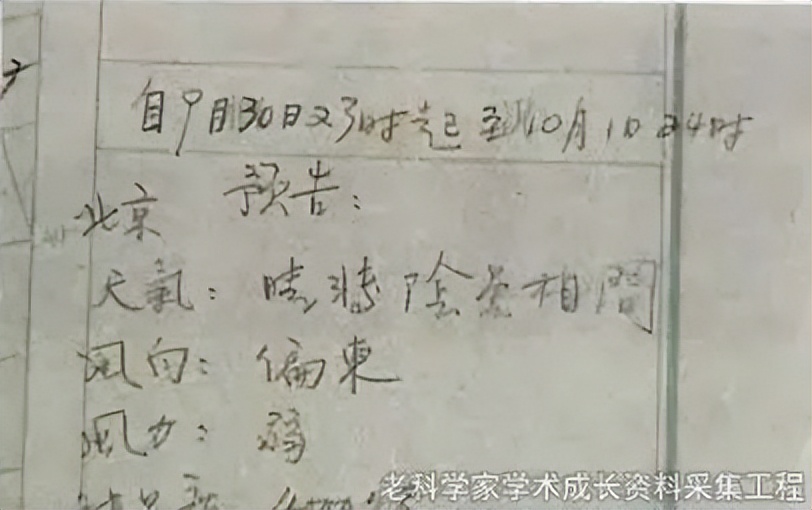 自9月30日23时起至10月1日24时
预告：
北京
天氣：晴转陰雲相間
风向：偏東
风力：弱
老科学家学术成长资料采集工程